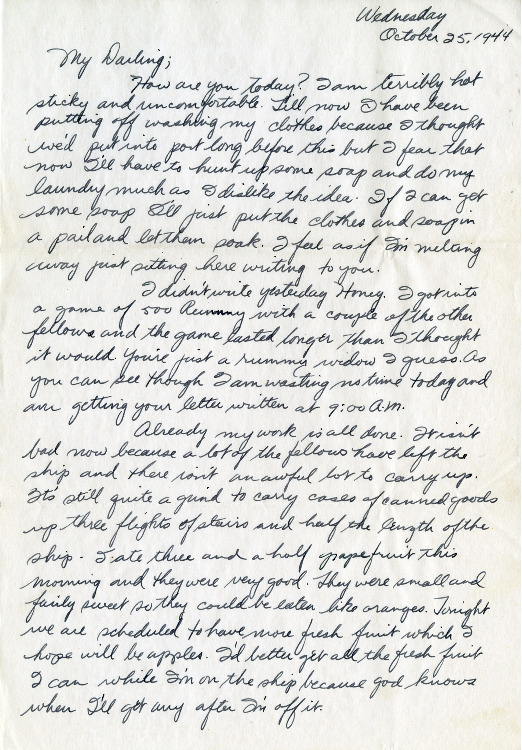 Wednesday
October 25, 1944
My Darling;
How are you today? I am terribly hot
sticky and uncomfortable. Till now I have been
putting off washing my clothes because I thought
we'd put into port long before this but I fear that
now I'll have to hunt up some soap and do my
laundry much as I dislike the idea. If I can get
some soap I'll just put the clothes and soap in
a pail and let them soak. I feel as if I'm melting
away just sitting here writing to you.
I didn't write yesterday Honey. I got into
a game of 500 Rummy with a couple of the other
fellows and the game lasted longer than I thought
it would. You're just a rummy widow I guess. As
you can see though I am wasting no time today and
am getting your letter written at 9:00 A.M.
Already my work is all done. It isn't
bad now because a lot of the fellows have left the
ship and there isn't an awful lot to carry up.
Its' still quite a grind to carry cases of canned goods
up three flights of stairs and half the length of the
ship. I ate three and a half grapefruit this
morning and they were very good. They were small and
fairly sweet so they could be eaten like oranges. Tonight
we are scheduled to have more fresh fruit which I
hope will be apples. I'd better get all the fresh fruit
I can while I'm on the ship because god knows
when I'll get any after I'm off it.